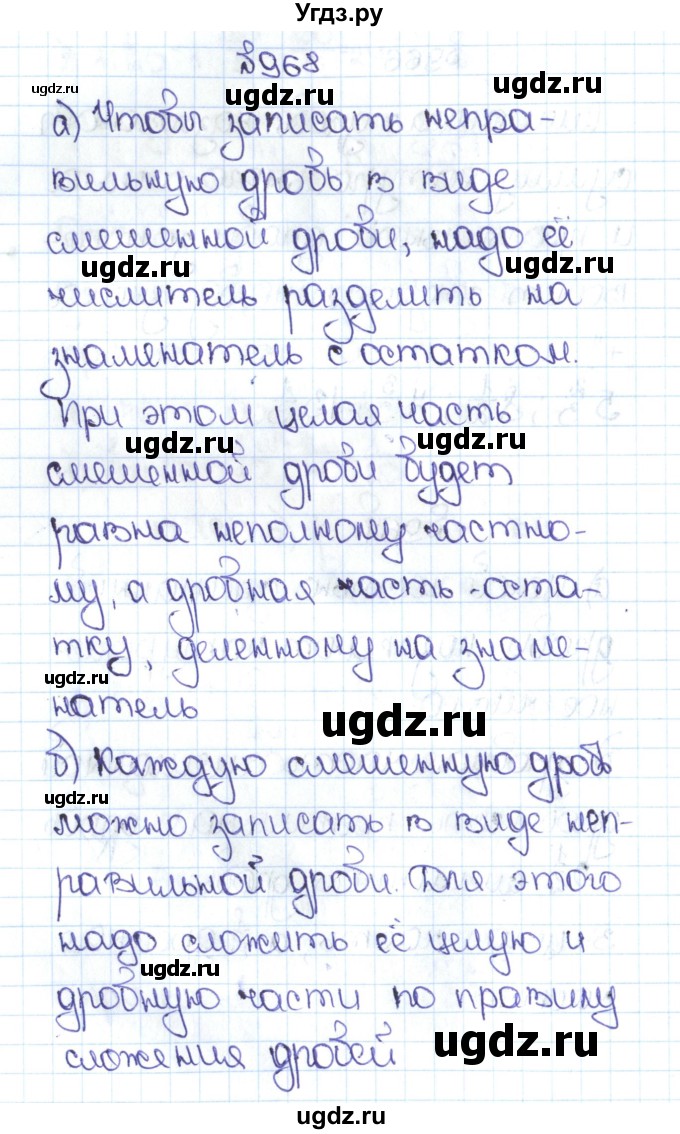 Угдз.ру
№968
ugdz.ru ugdz.ru
а) Чтобы записать непра-
ugdz.ru
вильную дробь в виде
смешенной дроби, надо её
ugdz.ru ugdz.ru
числитель разделить на
знаменатель с остатком.
При этом целая часть
ugdz.ru ugdz.ru
смешенной дроби будет
равна неполному частно-
му, а дробная часть - оста-
тку, деленному на знаме-
ugdz.ru
натель
ugdz.ru
б) Каждую смешенную дробь
ugdz.ru
можно записать в виде неп-
равильной дроби. Для этого
надо сложить её целую и
ugdz.ru
дробную части по правилу
сложения дробей
ugdz.ru
ugdz.ru